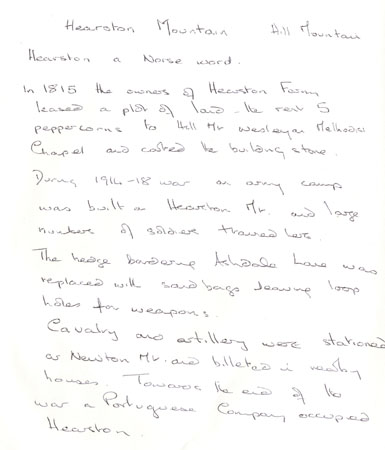 Hearston Mountain Hill Mountain
Hearston a Norse word.
In 1815 the owners of Hearston Farm
leased a plot of land - the rent 5
peppercorns to Hill Mt Wesleyan Methodist
Chapel and carted the building stone.
During 1914-18 war an army camp
was built on Hearston Mt. and large
numbers of soldiers trained here.
The hedge bordering Ashdale Lane was
replaced with sand bags leaving loop
holes for weapons.
Cavalry and artillery were stationed
on Newton Mt. and billeted in nearby
houses. Towards the end of the
war a Portuguese Company occupied
Hearston.